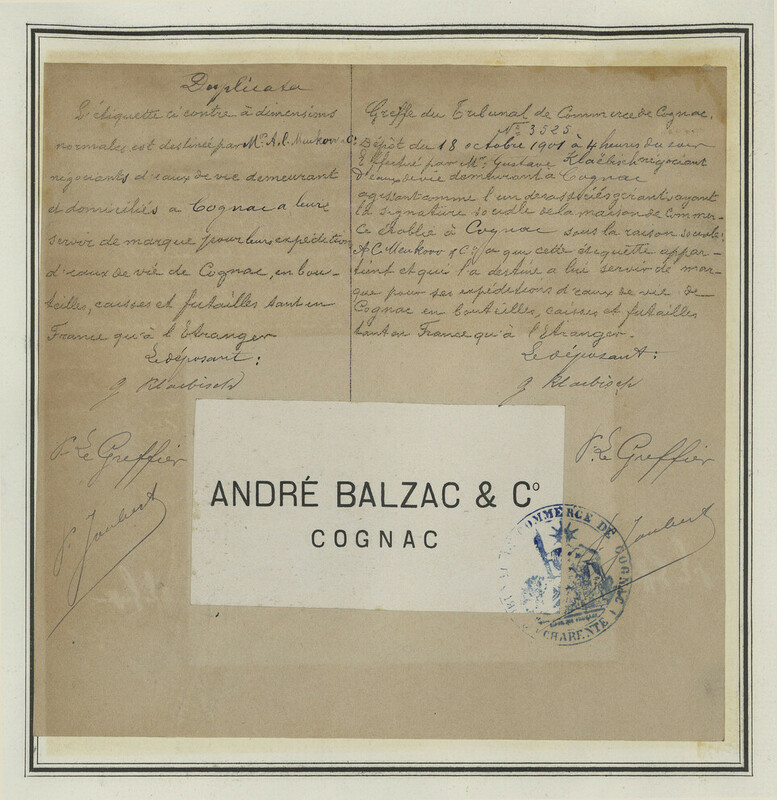 Duplicata
L'étiquette ci contre à dimensions
normales est destinée par Mrs A. C. Meukow & Co
négociants d'eaux de vie demeurant
et domiciliés a Cognac a leur
servir de marque pour leurs expéditions
d'eaux de vie de Cognac, en bou-
teilles, caisses et futailles tant en
France qu'à l'Etranger
Le déposant:
G Klaebisch
Pr Le Greffier
P. Joubert
Greffe du Tribunal de Commerce de Cognac.
No 3525
Dépôt du 18 octobre 1901 à 4 heures du soir
Effectué par Mr. Gustave Klaebisch négociant
D'eaux de vie demeurant à Cognac
agissant comme l'un des associés gérants, ayant
la signature sociale de la maison de Commer-
ce établie à Cognac sous la raison sociale
A C Meukow & Co a qui cette étiquette appar-
tient et qui l'a destine a lui servir de mar-
que pour ses expéditions d'eaux de vie de
Cognac en bouteilles, caisses et futailles
tant en France qu'à l'Etranger.
Le déposant:
G Klaebisch
Pr Le Greffier
Joubert
ANDRÉ BALZAC & Co
COGNAC
COMMERCE DE COGNAC
CHARENTE